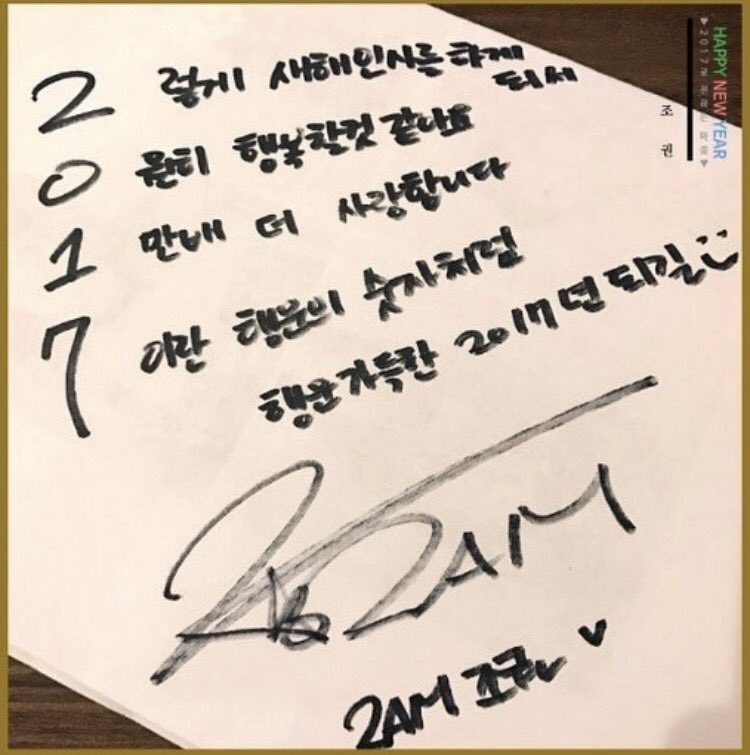 2 렇게 새해인사를 하게
되서
0 몬티 행복할것 같아요
1 만배 더 사랑합니다
7 이란 행운의 숫자처럼
행운가득한 2017년 되길
2AM
2AM 조권
HAPPY NEW YEAR
조권